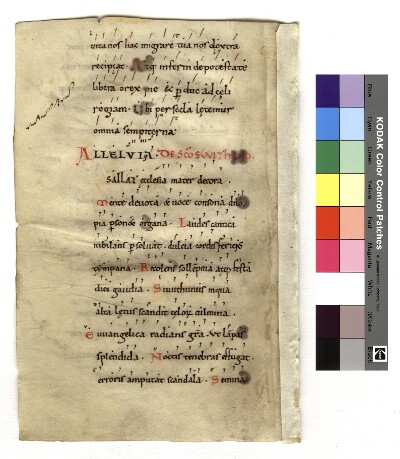 uita nos hac migrare tua nos dextra
recipiat. Atq; inferni de potestate
libera o rex pie &c p duc ad celi
rogiam. Ubi per secla letemur
omnia sempiterna.
ALLELVIA. DE SCO SWITHUNO.
PSALLAT ecclesia mater decora.
Mente deuota & uoce consona
pia psone organa. Laudes cantica
iubilans psoluat. dulcia cordis
tympana. Recolens sollepnia festa
diei gaudia. Swithunus inqua
alta letus scandit celor culmina.
Euuangelica radians gra. Vt lampas
splendida. Noctis tenebras effugat.
erroris amputat scandala. Semina
KODAK Color Control Patches
Blue
Cyan
Green
Yellow
Red
Magenta
White
3/Color
Black
Kodak